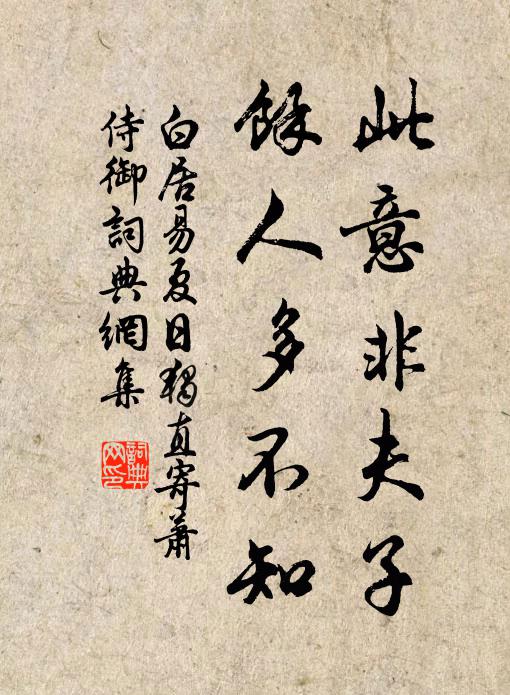 此意非夫子
餘人多不知
白居易夏日獨直寄蕭
侍御詞典網集
詞典
网印